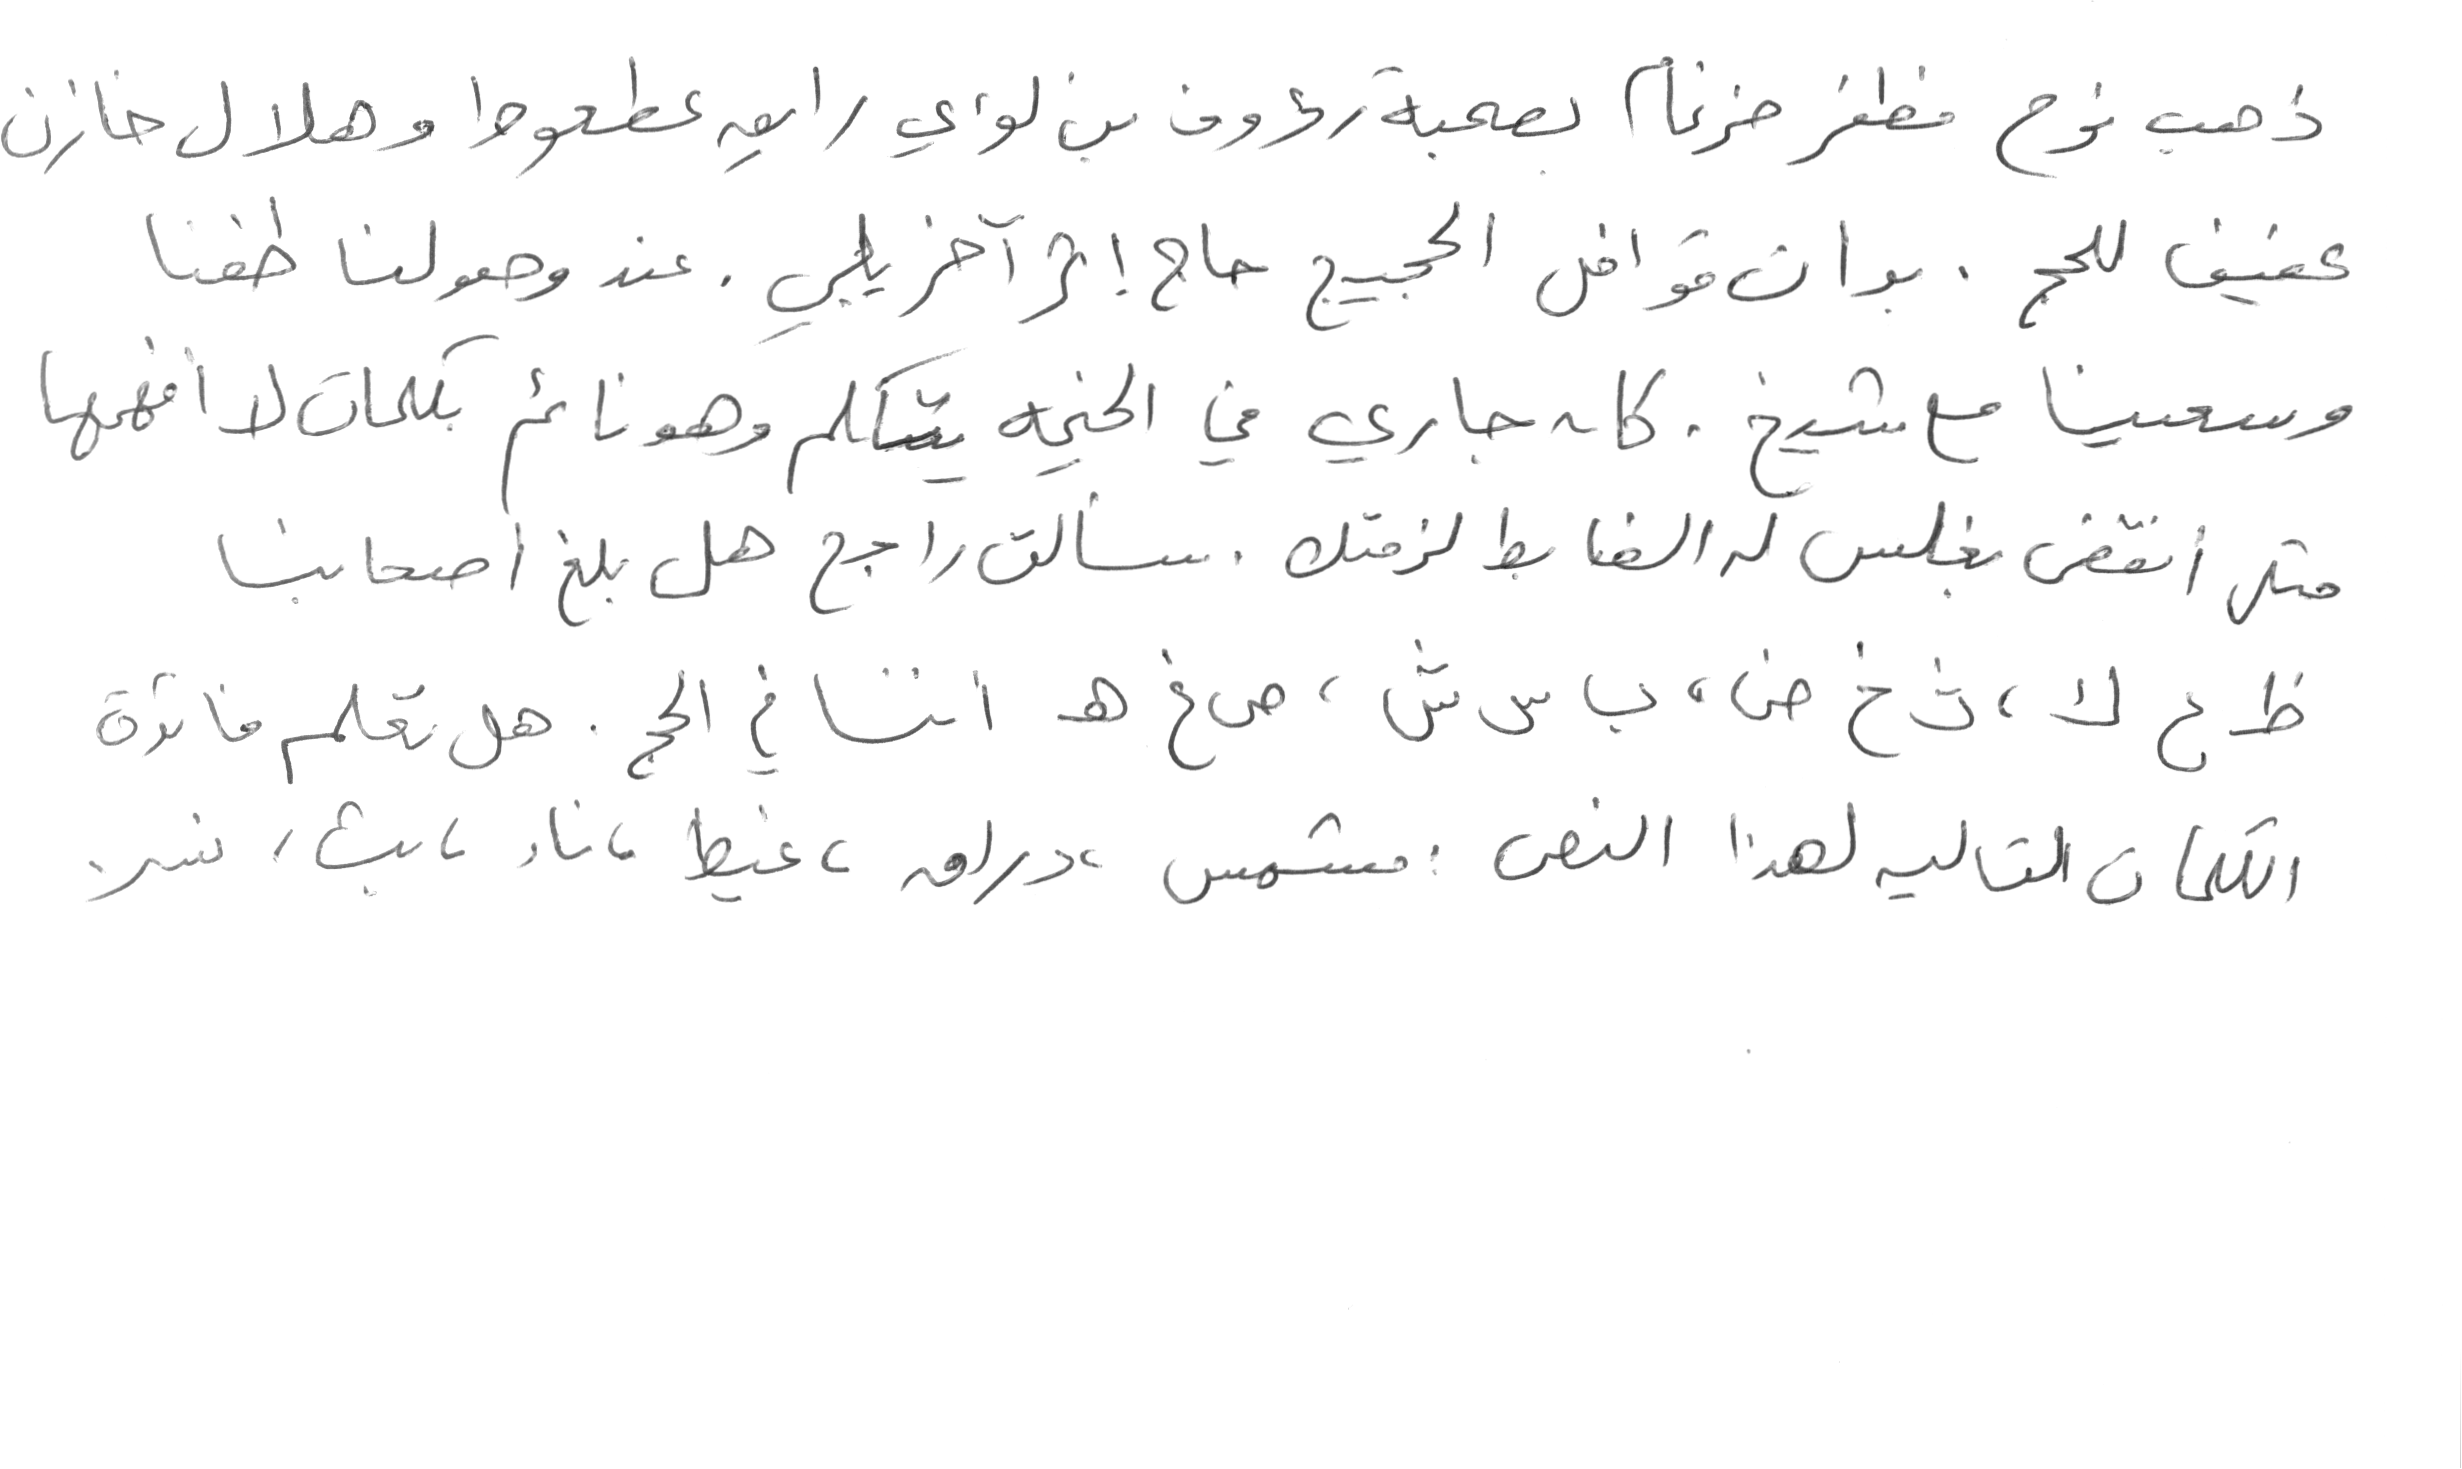 ذهب نوح مظفر ضرغام بصحبة رؤوف بن لؤي راجح عطعوط وهلال خازن
عفيف للحج . بدات قوافل الحجيج حاج إثر آخر يلبي . عند وصولنا طفنا
وسعينا مع شيخ . كان جاري في الخيمه يتكلم وهو نائم بكلمات لا افهمها
مثل أنقض بغلس له الضابط لزمتك . سألت راجح هل بلغ أصحابنا
ظ ح ك ، ث خ ض ، ب س ش ، ص غ هـ انتسا في الحج . هل تعلم فائدة
الكلمات التاليه لهذا النص : مشمس ، دراق ، غيط ، نار ، بيث ، نسر .